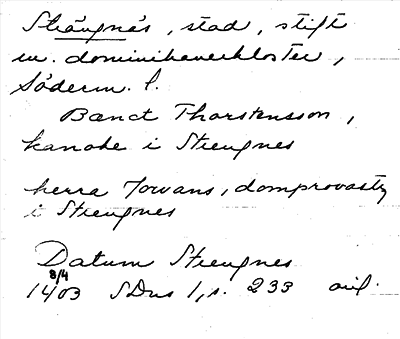 Strängnäs, stad, stift
m. dominikanerkloster,
Söderm. l.
Bænct Thorstensson,
kanoke i Strengnes
herra Jowans, domprovasty
i Strengnes
Datum Strengnes
8/4
1403 SDns 1, s. 233 avil.